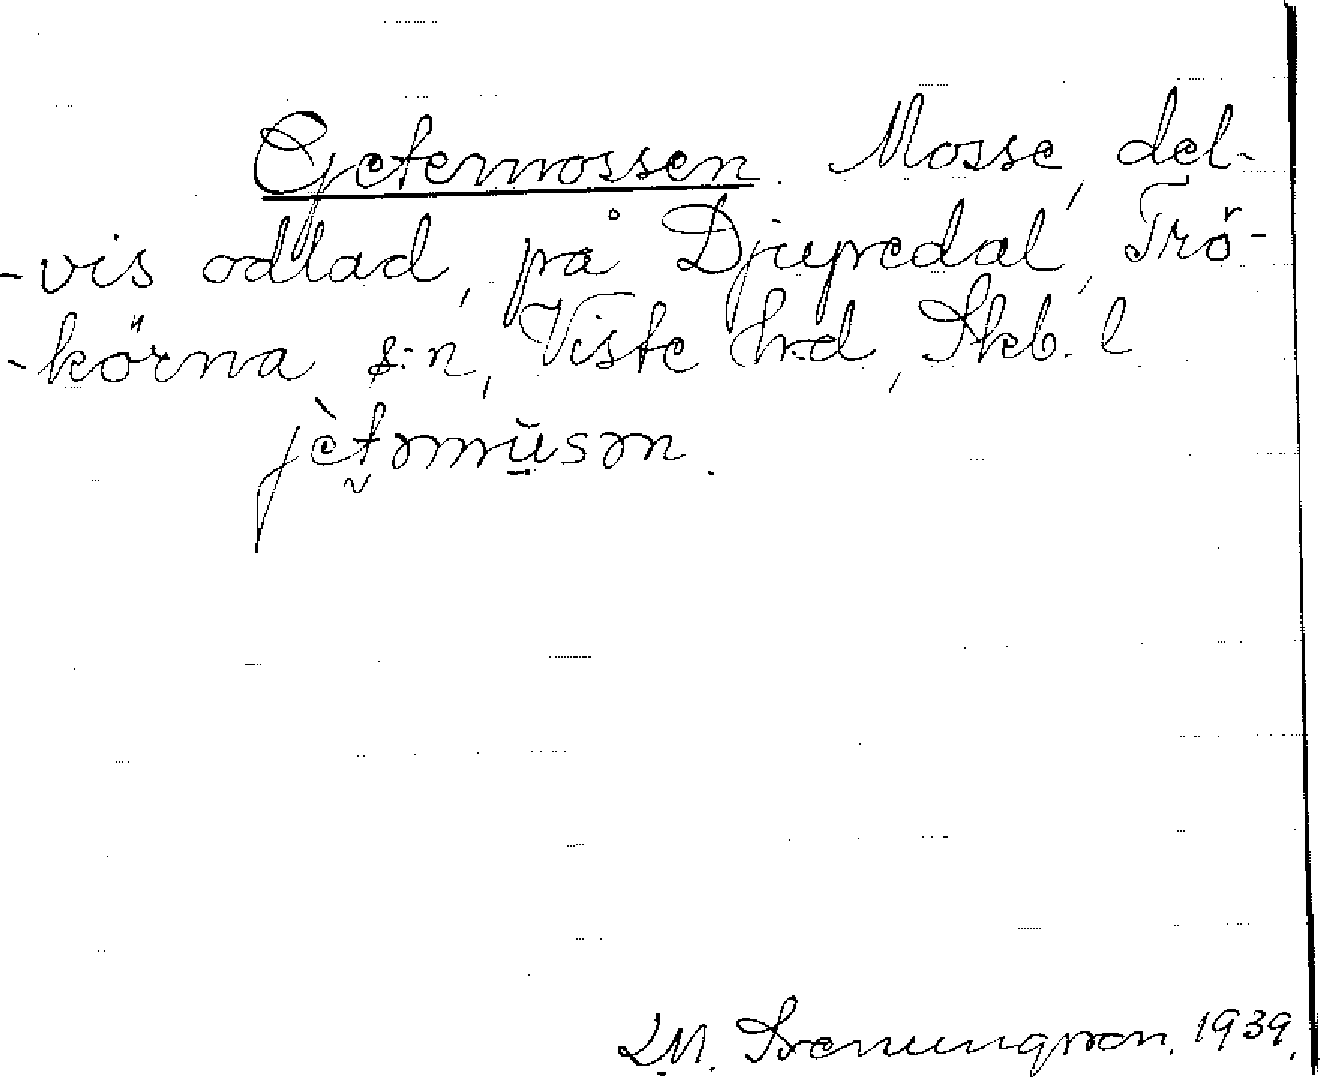 Getermossen. Mosse, del-
-vis odlad, på Djupedal, Trö-
-körna s:n, Viste hrd, Skb. l
jètərmùsən.
L.M. Svenungsson. 1939.